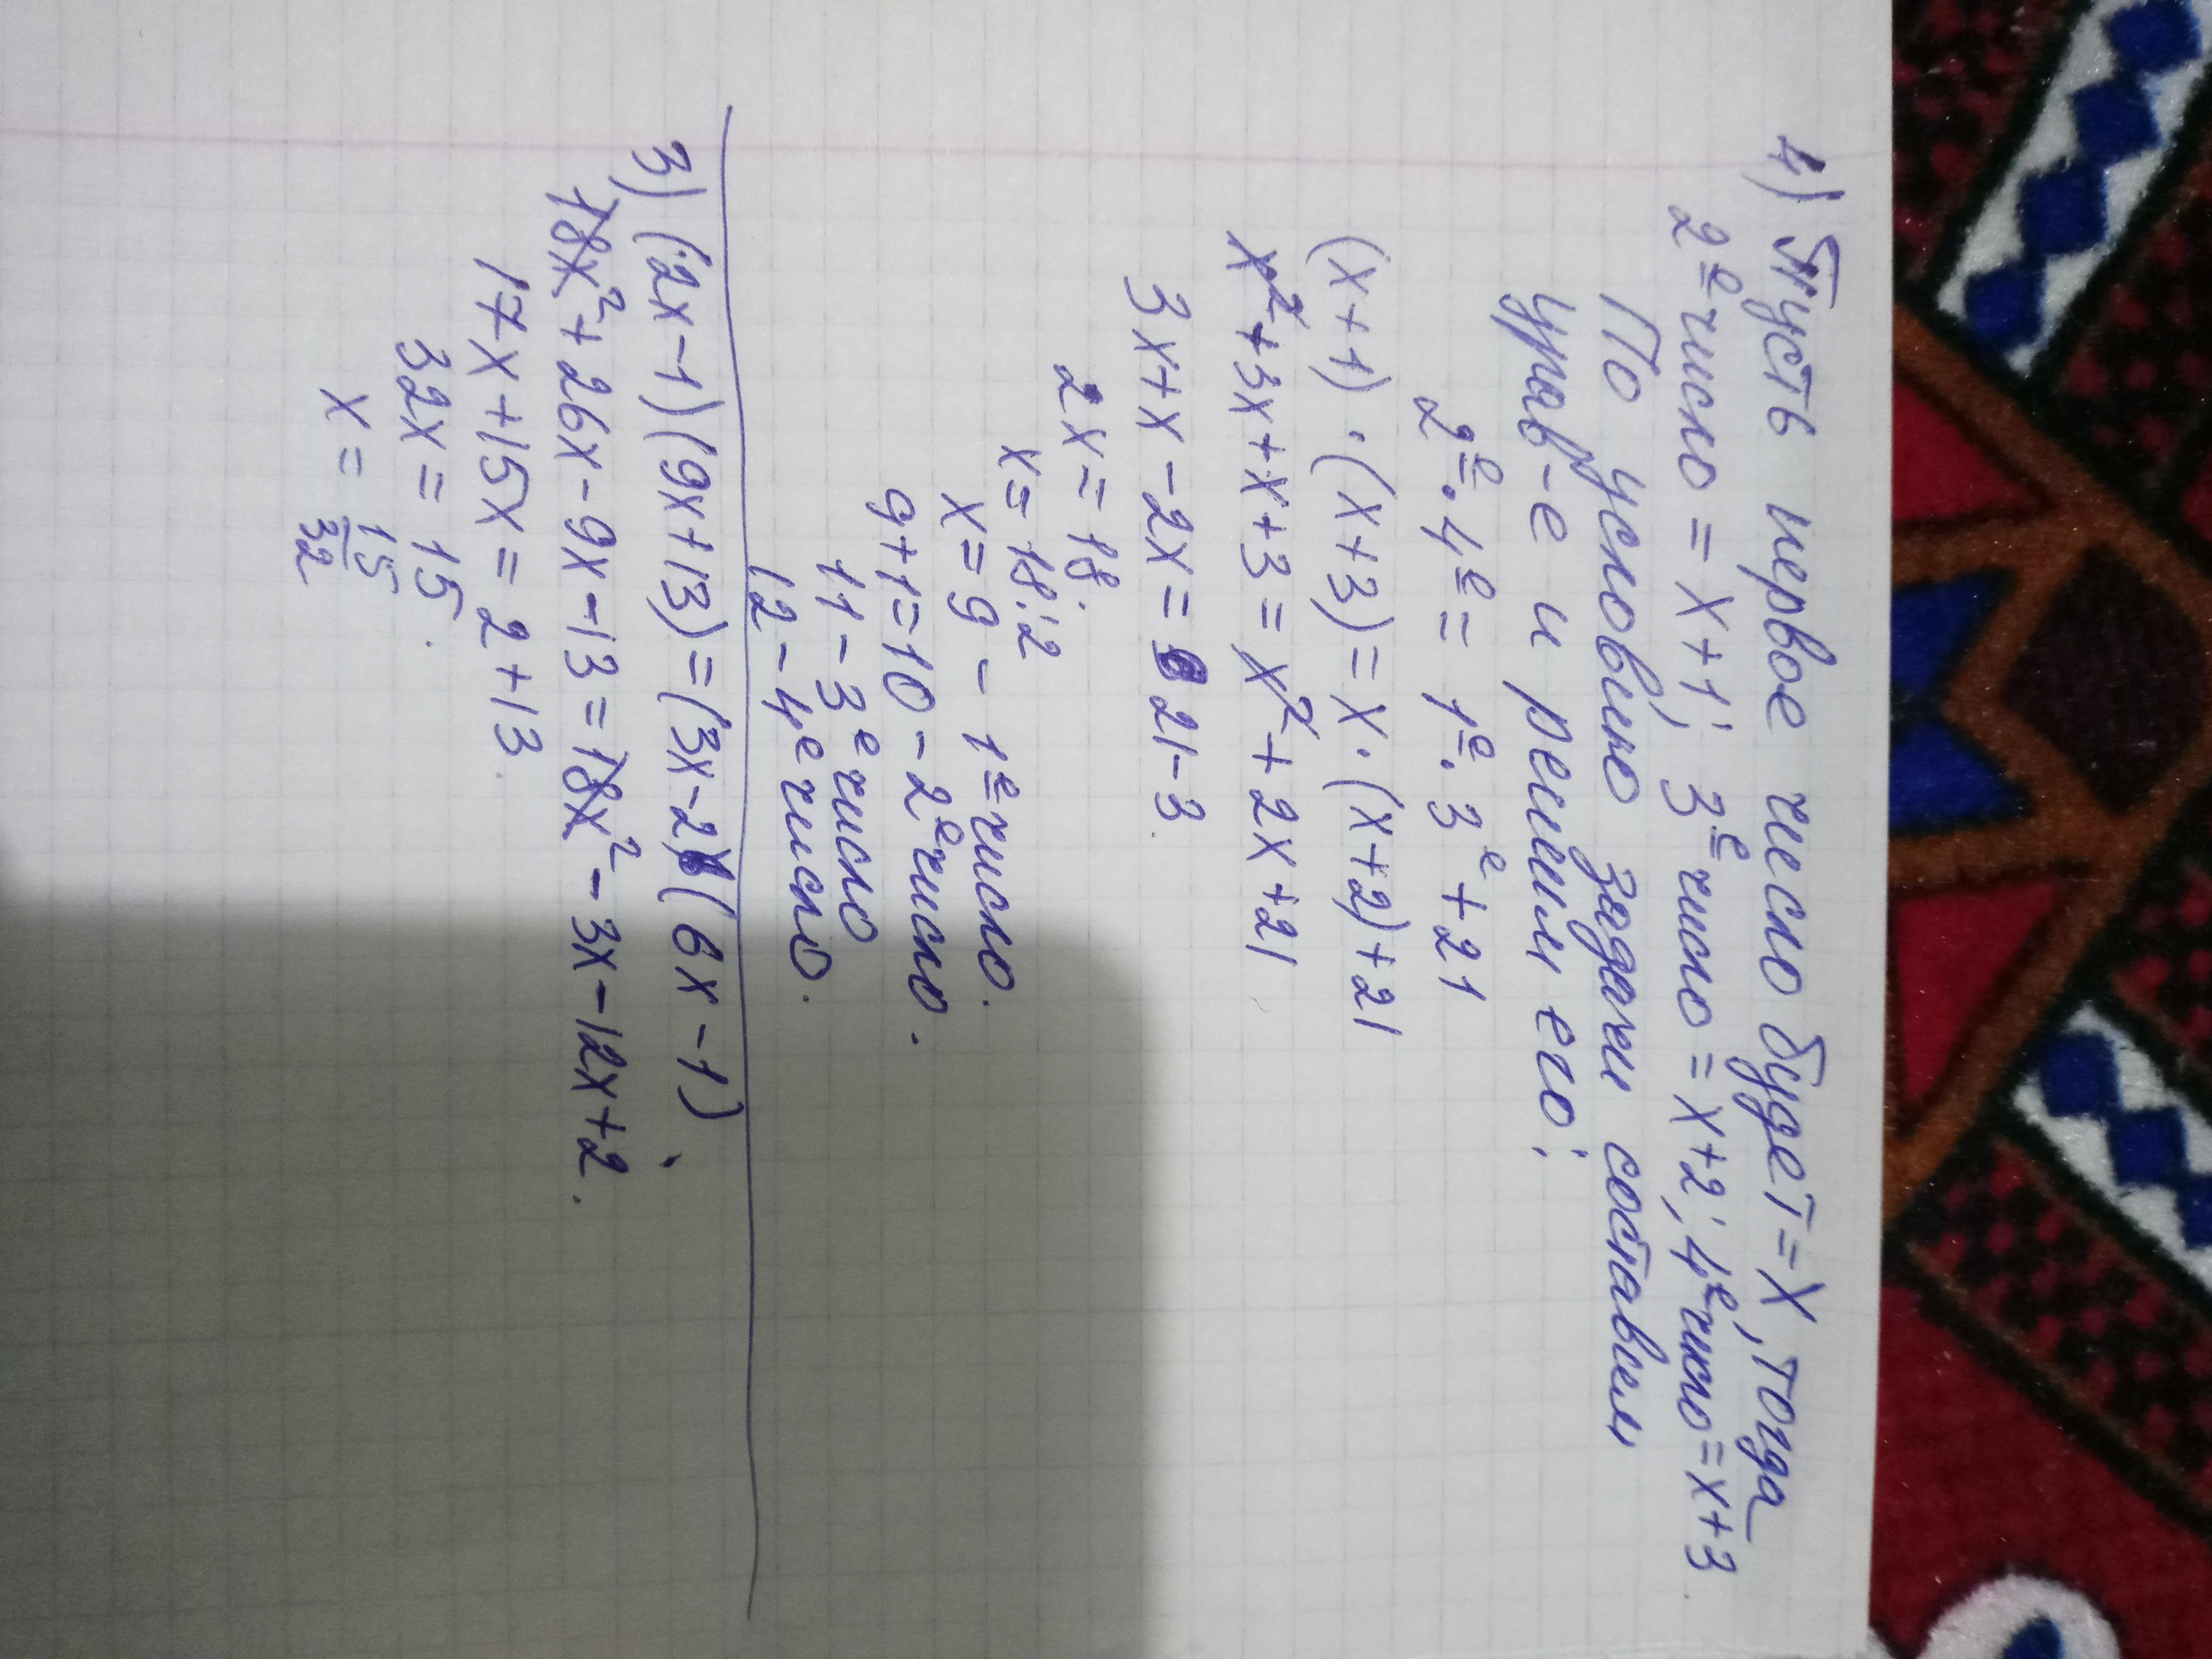 4) Пусть первое число будет = x, тогда
2е число = x+1; 3е число = x+2; 4е число = x+3.
По условию задачи составим
урав-е и решим его:
2е · 4е = 1е · 3е + 21
(x+1) · (x+3) = x · (x+2) + 21
x² + 3x + x + 3 = x² + 2x + 21
3x + x - 2x = 21 - 3.
2x = 18.
x = 18:2
x = 9 - 1е число.
9+1 = 10 - 2е число.
11 - 3е число
12 - 4е число.
3) (2x-1)(9x+13) = (3x-2)(6x-1)
18x² + 26x - 9x - 13 = 18x² - 3x - 12x + 2.
17x + 15x = 2 + 13
32x = 15.
x = 15/32